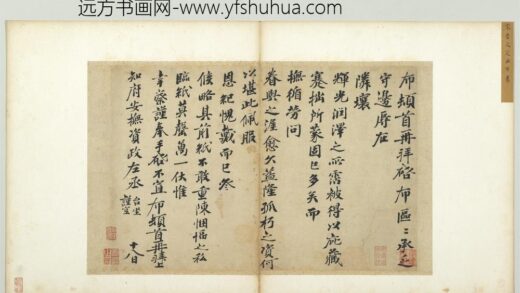 远方书画网-www.yfshuhua.com
布頓首再拜啓布區〻承乏
守邊辱在
隣壤
輝光潤澤之所霑被得以庇藏
蹇拙所蒙固已多矣而
撫循勞問
眷與之渥愈久益隆孤朽之資何
以堪此佩服
恩紀愧戴而已參
候略具前紙不敢重陳悃愊之私
臨紙莫罄萬一伏惟
幸察謹奉手啓不宣布頓首再拜上
知府安撫資政左丞 台坐
謹空
十八日